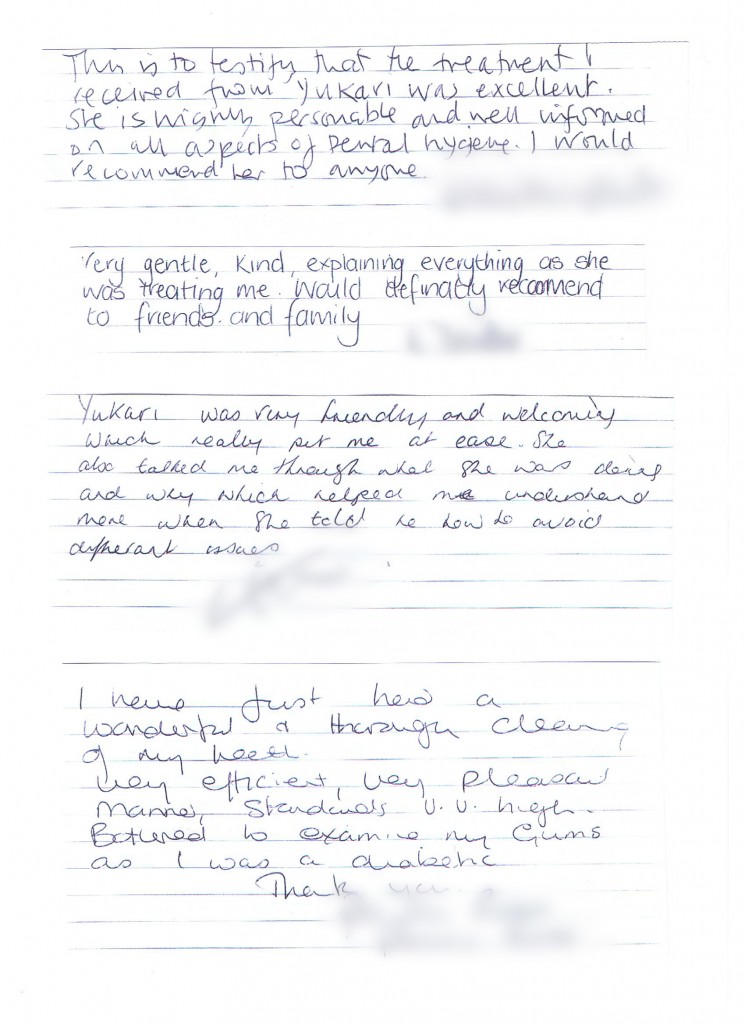 This is to testify that the treatment I
received from Yukari was excellent.
She is highly personable and well informed
on all aspects of Dental hygiene. I would
recommend her to anyone.
Very gentle, kind, explaining everything as she
was treating me. Would definatly recoomend
to friends. and family
Yukari was very friendly and welcoming
which really put me at ease. She
also talked me through what she was doing
and why which helped me understand
more when she told me how to avoid
differant issues
I have just had a
wonderful & thorough cleaning
of my teeth.
Very efficient, very pleasant
manner, Standards V.V. high.
Bothered to examine my Gums
as I was a diabetic
Thank you.